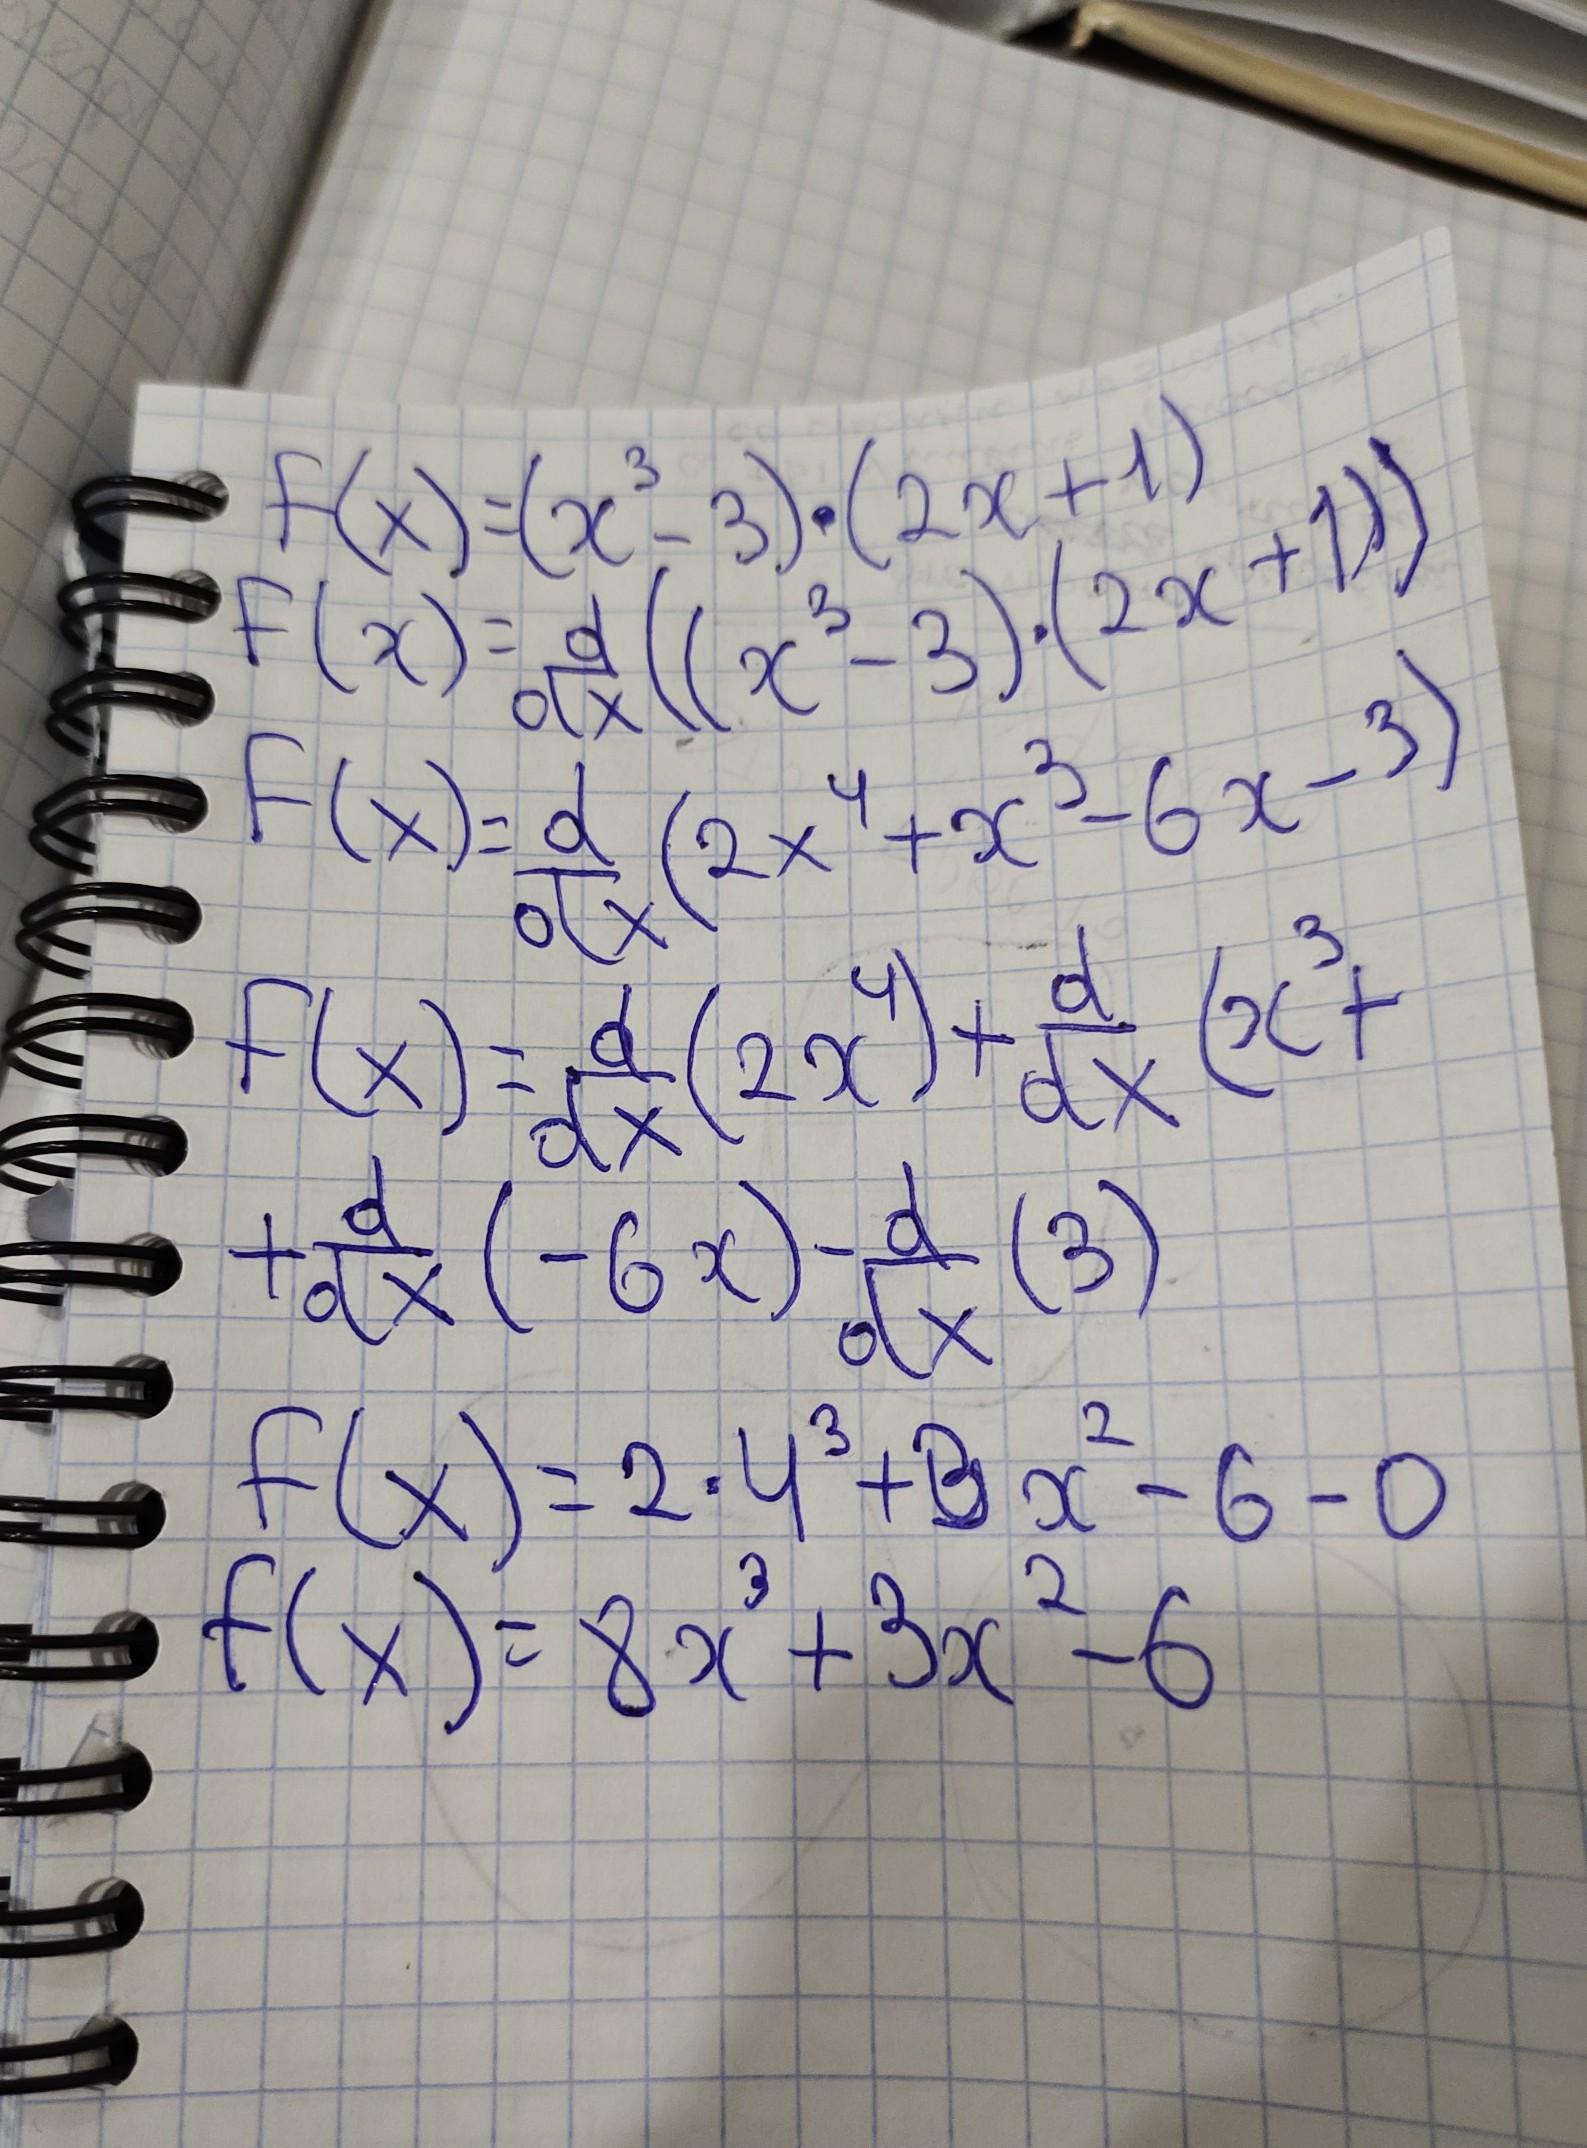 f(x)=(x³-3)·(2x+1)
f(x)=d/dx((x³-3)·(2x+1))
f(x)=d/dx(2x⁴+x³-6x-3)
f(x)=d/dx(2x⁴)+d/dx(x³+
+d/dx(-6x)-d/dx(3)
f(x)=2·4³+3x²-6-0
f(x)=8x³+3x²-6